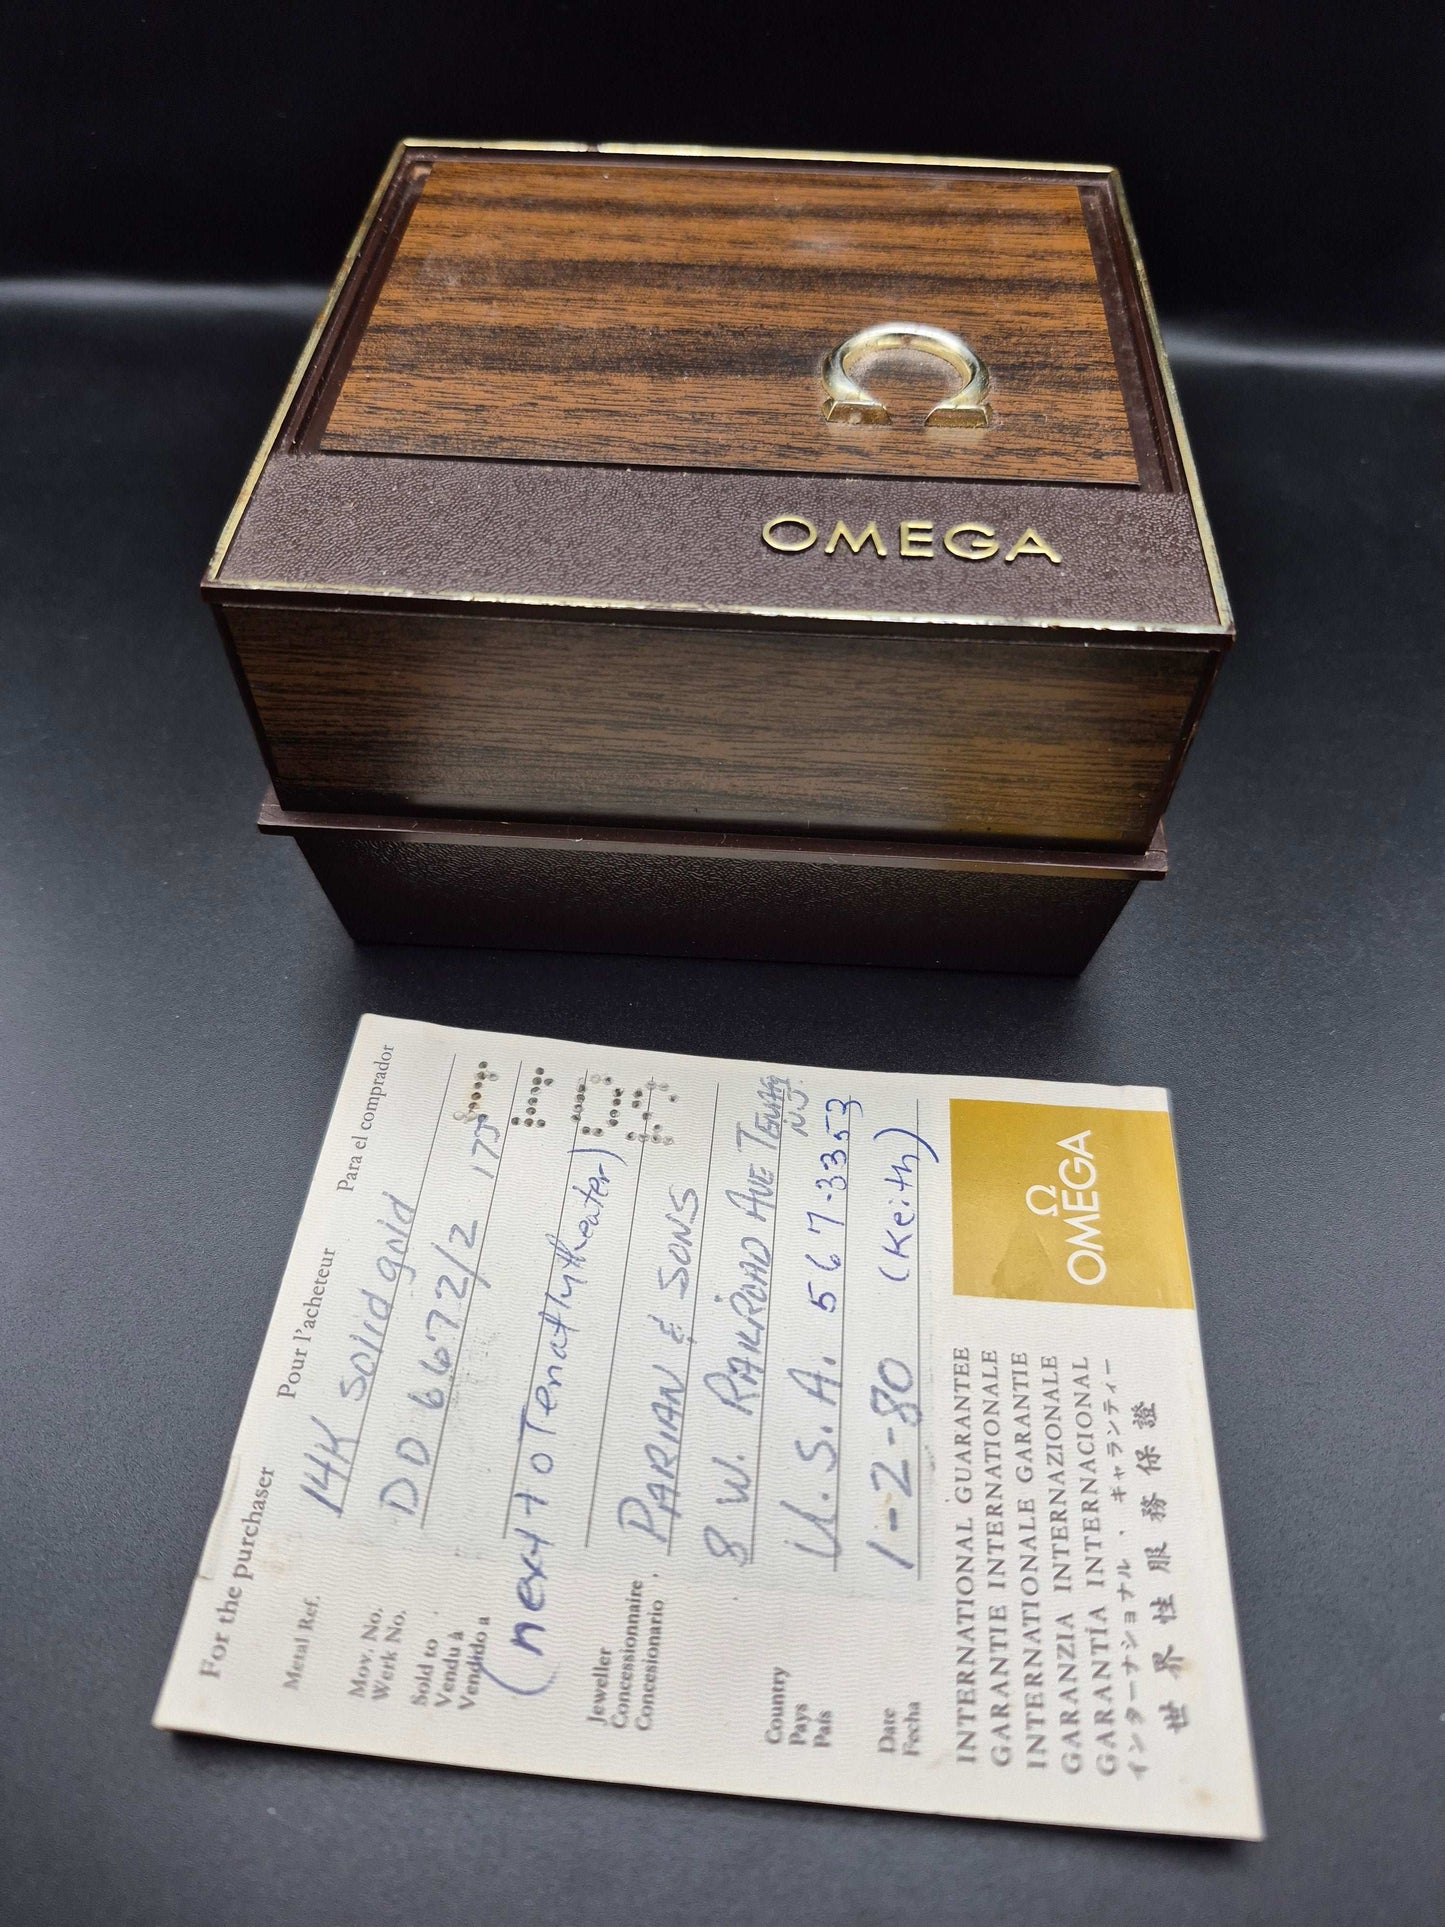 OMEGA
For the purchaser Pour l'acheteur Para el comprador
Metal Ref. 14K Solid gold
Mov. No.
Werk No. DD 6672/2 175
Sold to
Vendu à
Vendido a
(next to Tenafly theater)
Jeweller
Concessionnaire
Concesionario
PARIAN & SONS
8 W. RAILROAD AVE TENAFLY
N.J.
Country
Pays
País
U.S.A. 567-3353
Date
Fecha
1-2-80 (Keith)
Ω
OMEGA
INTERNATIONAL GUARANTEE
GARANTIE INTERNATIONALE
INTERNATIONALE GARANTIE
GARANZIA INTERNAZIONALE
GARANTÍA INTERNACIONAL
インターナショナル・ギャランティー
世界性服務保證